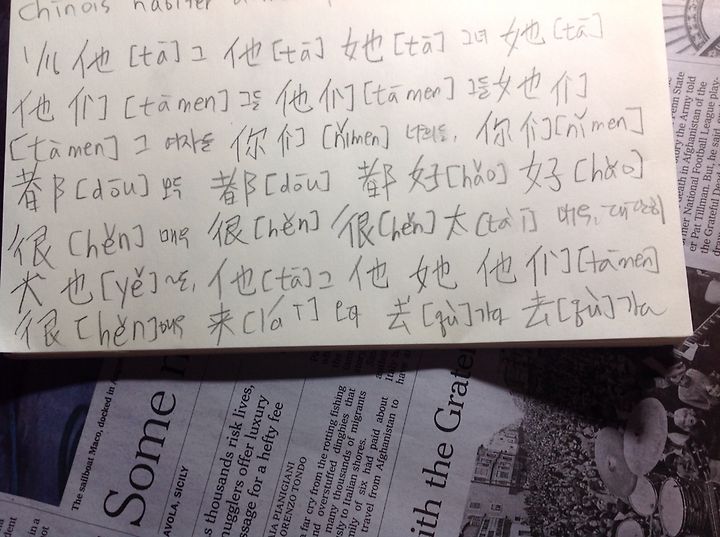 Chinois habiter
1/16 他 [tā] 그 他 [tā] 她 [tā] 그녀 她 [tā]
他们 [tāmen] 그들 他们 [tāmen] 그들 她们
[tāmen] 그 여자들 你们 [nǐmen] 너희들, 你们 [nǐmen]
都 [dōu] 모두 都 [dōu] 都 好 [hǎo] 好 [hǎo]
很 [hěn] 매우 很 [hěn] 很 [hěn] 太 [tài] 매우, 대단히
犬 也 [yě] ~도, 他 [tā] 그 他 她 他们 [tāmen]
很 [hěn] 매우 来 [lái] 오다 去 [qù] 가다 去 [qù] 가다
The sailboat Maco, docked in A
Some
AVOLA, SICILY
s thousands risk lives,
nugglers offer luxury
ssage for a hefty fee
IA PIANIGIANI
LORENZO TONDO
a far cry from the rotting fishing
and overstuffed dinghies that
many thousands of migrants
usly to Italian shores.
mily of six had paid about
travel from Afghanistan to
ith the Grate
Penn State
ory the Army told
death in Afghanistan of the
rmer National Football League play-
er Pat Tillman. But, he said
the Grateful Dead